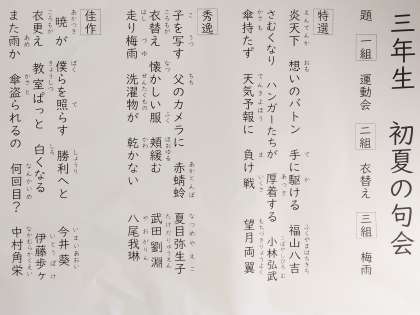 三年生 初夏の句会
題 一組 運動会 二組 衣替え 三組 梅雨
特選
炎天下 想いのバトン 手に駆ける 福山八吉
さむくなり ハンガーたちが 厚着する 小林弘武
傘持たず 天気予報に 負け戦 望月両翼
秀逸
子を写す 父のカメラに 赤蜻蛉 夏目弥生子
衣替え 懐かしい服 頬緩む 武田劉淵
走り梅雨 洗濯物が 乾かない 八尾我琳
佳作
暁が 僕らを照らす 勝利へと 今井葵
衣更え 教室ぱっと 白くなる 伊藤歩ヶ
また雨か 傘盗られるの 何回目？ 中村角栄